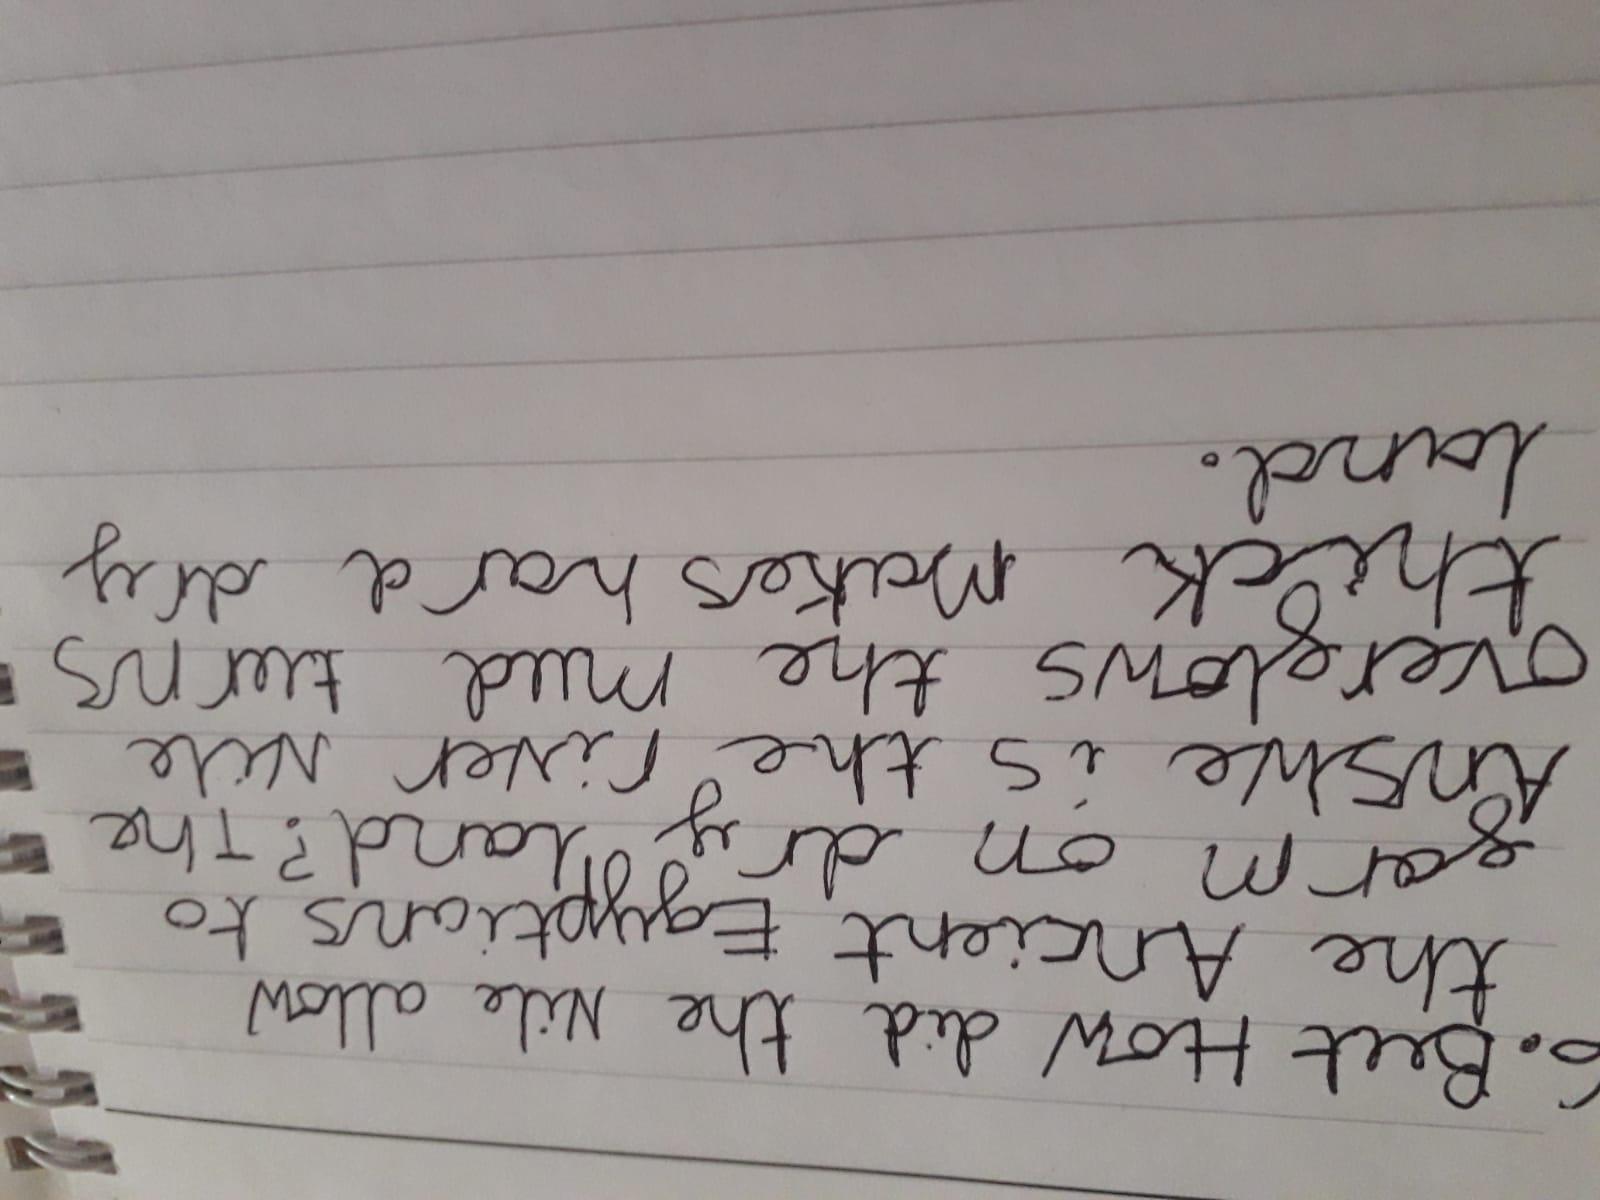 6. But How did the Nile allow
the Ancient Egyptians to
farm on dry land? The
Answe is the river Nile
overflows the mud turns
thick makes hard dry
land.